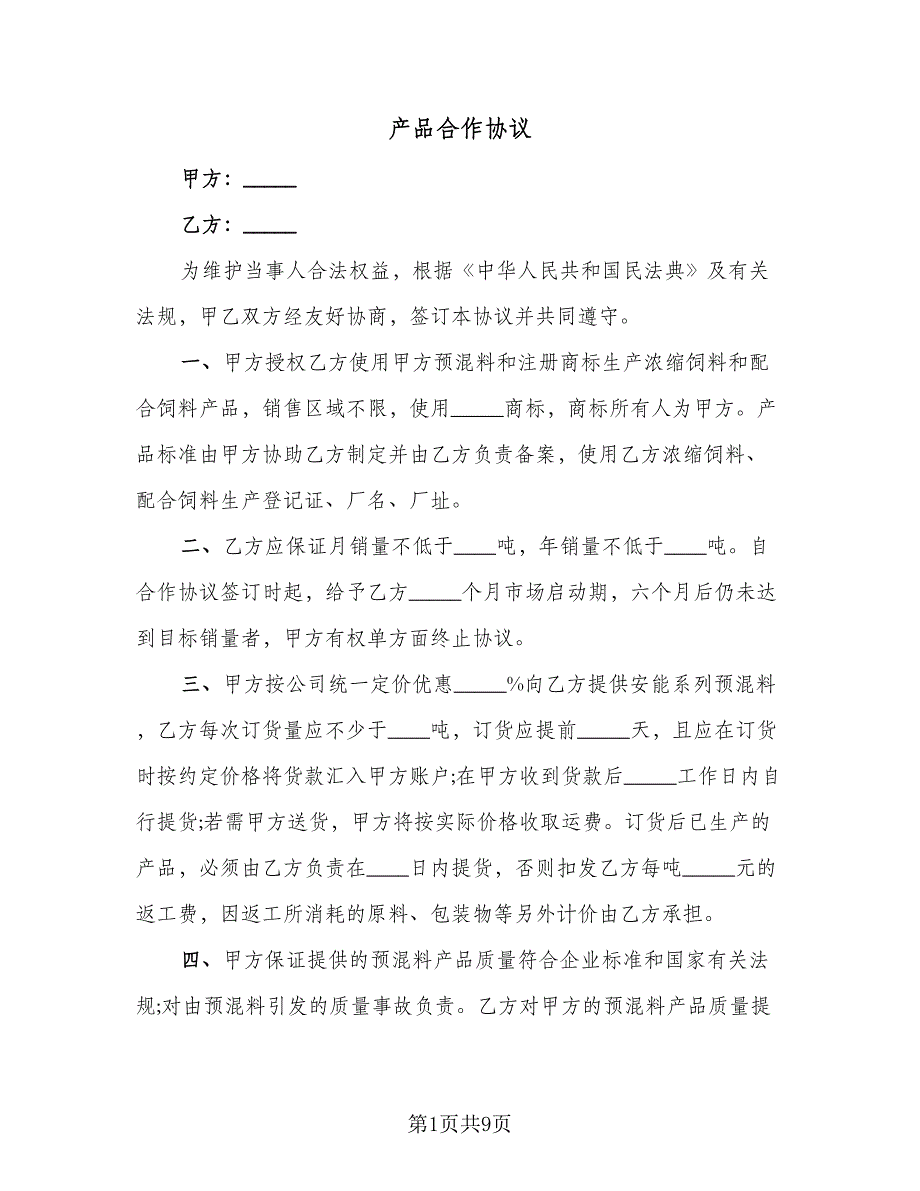 产品合作协议
甲方：_____
乙方：_____
为维护当事人合法权益，根据《中华人民共和国民法典》及有关
法规，甲乙双方经友好协商，签订本协议并共同遵守。
一、甲方授权乙方使用甲方预混料和注册商标生产浓缩饲料和配
合饲料产品，销售区域不限，使用_____商标，商标所有人为甲方。产
品标准由甲方协助乙方制定并由乙方负责备案，使用乙方浓缩饲料、
配合饲料生产登记证、厂名、厂址。
二、乙方应保证月销量不低于____吨，年销量不低于____吨。自
合作协议签订时起，给予乙方_____个月市场启动期，六个月后仍未达
到目标销量者，甲方有权单方面终止协议。
三、甲方按公司统一定价优惠_____%向乙方提供安能系列预混料
，乙方每次订货量应不少于____吨，订货应提前_____天，且应在订货
时按约定价格将货款汇入甲方账户;在甲方收到货款后_____工作日内自
行提货;若需甲方送货，甲方将按实际价格收取运费。订货后已生产的
产品，必须由乙方负责在____日内提货，否则扣发乙方每吨_____元的
返工费，因返工所消耗的原料、包装物等另外计价由乙方承担。
四、甲方保证提供的预混料产品质量符合企业标准和国家有关法
规;对由预混料引发的质量事故负责。乙方对甲方的预混料产品质量提
第1页共9页